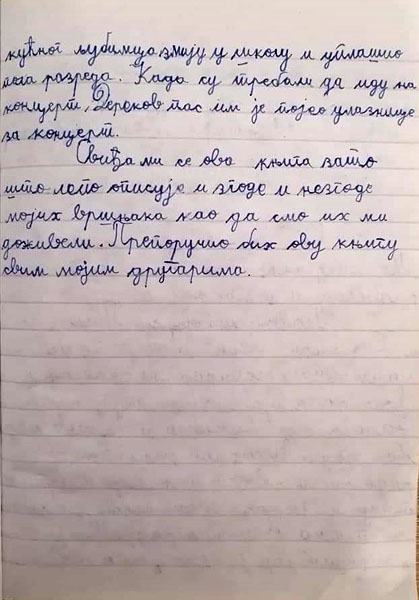 кућног љубимца змију у школу и уплашио
пола разреда. Када су требали да иду на
концерт, Дероков пас им је појео улазнице
за концерт.
Свиђа ми се ова књига зато
што лепо описује и згоде и незгоде
мојих вршњака као да смо их ми
доживели. Препоручио бих ову књигу
свим мојим другарима.